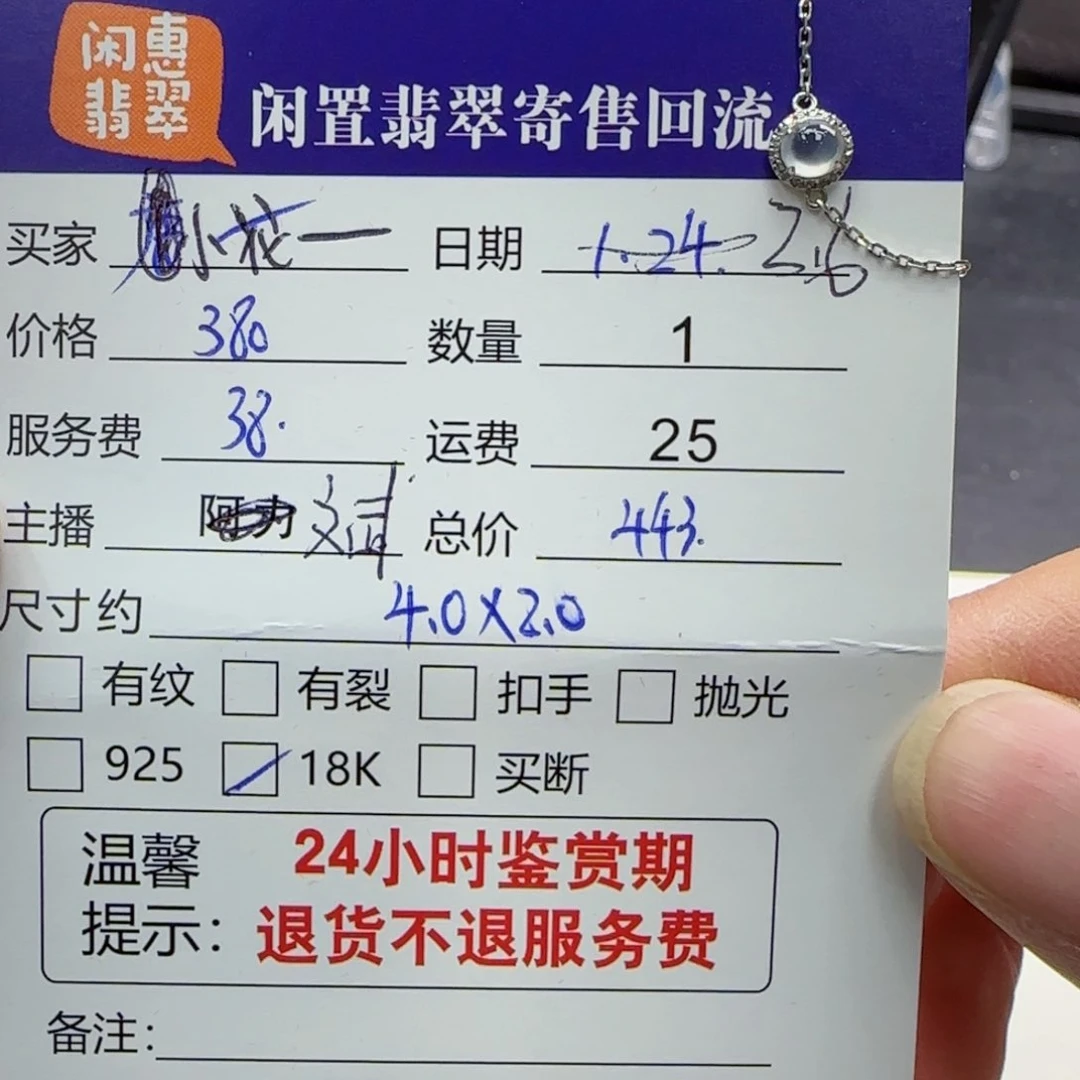 闲惠
翡翠
闲置翡翠寄售回流
买家 小花一 日期 1.24. 2.6
价格 380 数量 1
服务费 38. 运费 25
主播 总价 443.
尺寸约 4.0X2.0
有纹 有裂 扣手 抛光
925 18K 买断
温馨 24小时鉴赏期
提示: 退货不退服务费
备注: